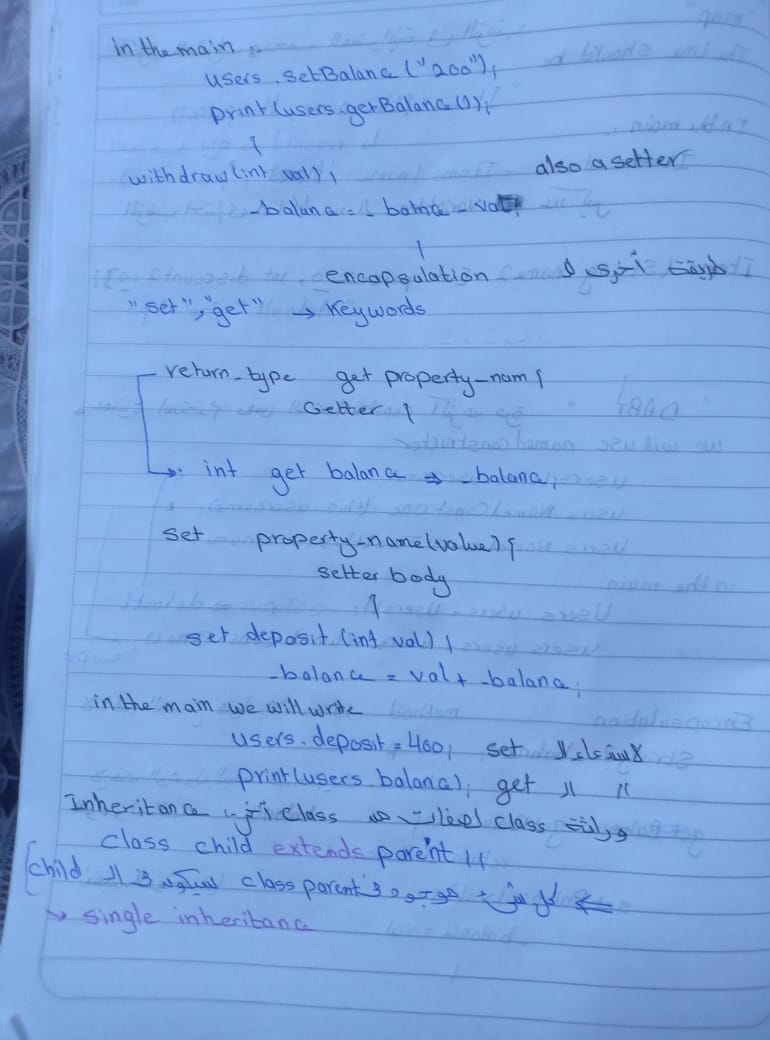 in the main
users.setBalanc("200");
print(users.getBalanc());
}
withdraw(int val){ also a setter
_balanc = _balnc - val;
}
طريقة أخرى لـ encapsulation
"set", "get" → keywords
return_type get property_nam {
Getter }
int get balanc => _balanc;
set property_name(value){
setter body
}
set deposit (int val) {
_balance = val + _balanc;
in the main we will write
users.deposit = 400; set لاستدعاء لـ
print(users.balanc); get // //
Inheritance: وراثة class لصفات من class آخر
class child extends parent {}
← كل شيء موجود في class parent سيكون في الـ child
→ single inheritanc